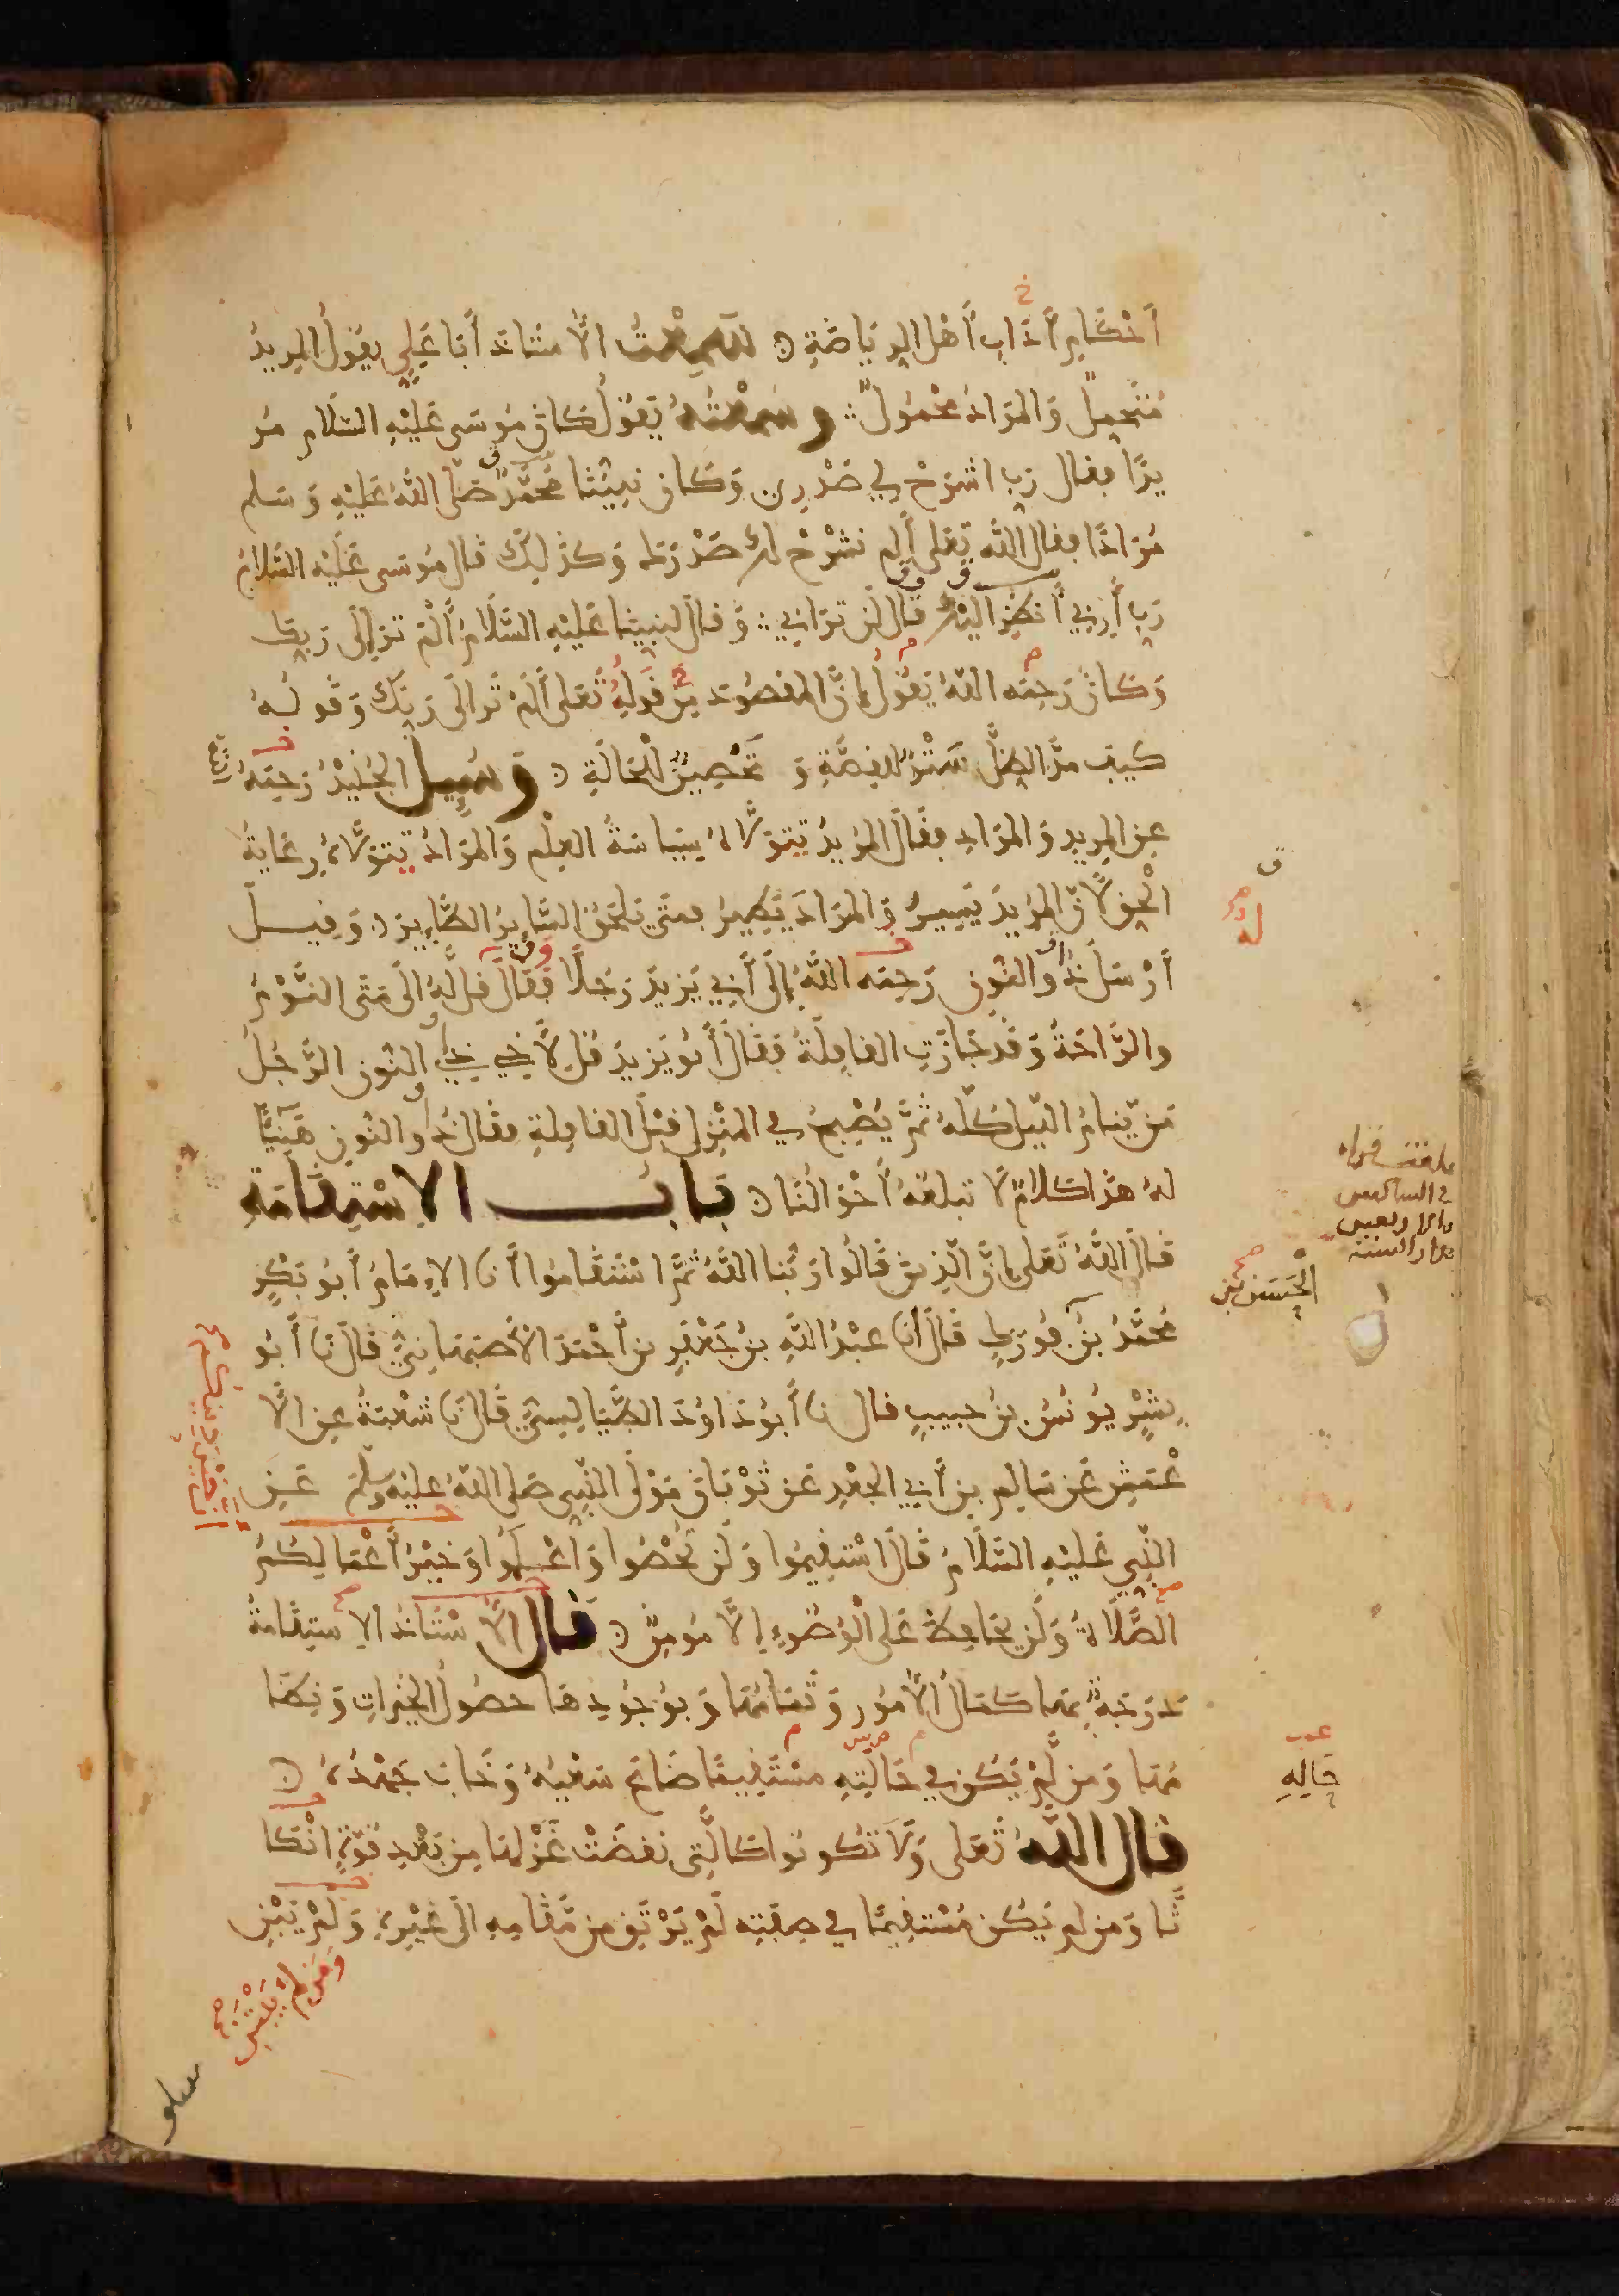 أحكام آداب أهل الرياضة سمعت الأستاذ أبا علي يقول المريد
متحمل والمراد محمول وسمعته يقول كان موسى عليه السلام مر
يدا فقال رب اشرح لي صدري وكان نبينا محمد صلى الله عليه وسلم
مرادا فقال الله تعلى ألم نشرح لك صدرك وكذلك قال موسى عليه السلام
رب أرني أنظر إليك قال لن تراني وقال لنبينا عليه السلام ألم تر إلى ربك
وكان رحمه الله يقول إن المقصود من قوله تعلى ألم تر إلى ربك وقوله
كيف مد الظل ستر للقصة وتحصين للحالة وسيل الجنيد رحمه
عن المريد والمراد فقال المريد تتولاه سياسة العلم والمراد يتولاه رعاية
الحق لأن المريد يسير والمراد يطير فمتى يلحق الساير الطاير وقيل
أرسل ذو النون رحمه الله إلى أبي يزيد رجلا فقال قل له إلى متى النوم
والراحة وقد جازت القافلة فقال أبو يزيد قل لأخي ذي النون الرجل
من ينام الليل كله ثم يصبح في المنزل قبل القافلة فقال ذو النون هنيئا
له هذا كلام لا تبلغه أحوالنا باب الاستقامة
قال الله تعلى إن الذين قالوا ربنا الله ثم استقاموا أنا الإمام أبو بكر
محمد بن فورك قال أنا عبد الله بن جعفر بن أحمد الأصبهاني قال نا أبو
بشر يونس بن حبيب قال نا أبو داود الطيالسي قال نا شعبة عن الأ
عمش عن سالم بن أبي الجعد عن ثوبان مولى النبي صلى الله عليه وسلم عن
النبي عليه السلام قال استقيموا ولن تحصوا واعلموا وخير أعمالكم
الصلاة ولن يحافظ على الوضوء إلا مومن قال الأستاذ الاستقامة
درجة بها كمال الأمور وتمامها وبوجودها حصول الخيرات ونظا
مها ومن لم يكن في حالته مستقيما ضاع سعيه وخاب جهده
قال الله تعلى ولا تكونوا كالتي نقضت غزلها من بعد قوة أنكا
ثا ومن لم يكن مستقيما في صفته لم يرتق من مقامه إلى غيره ولم يبن
الحسن بن
حاله
ومن لم يبتن